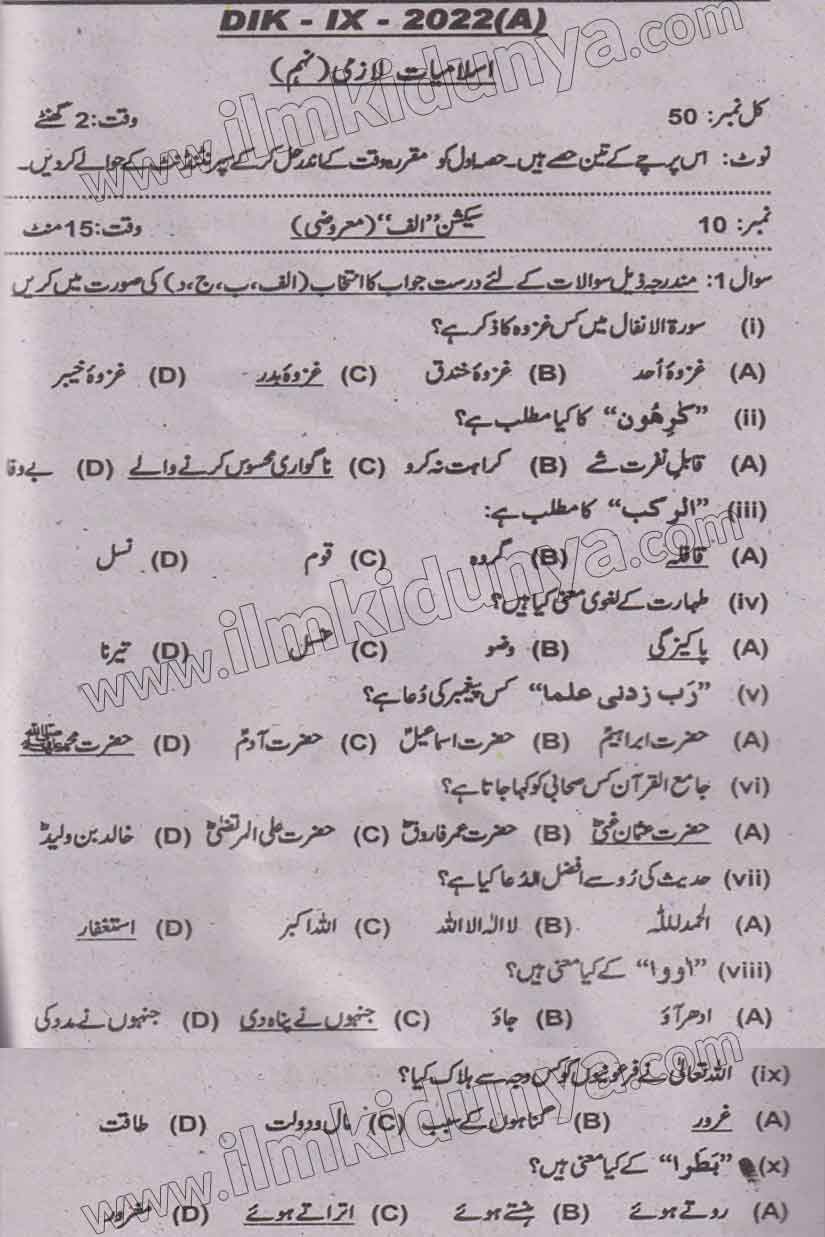 DIK - IX - 2022(A)
اسلامیات لازمی (نہم)
کل نمبر: 50 وقت: 2 گھنٹے
نوٹ: اس پرچے کے تین حصے ہیں۔ حصہ اول کو مقررہ وقت کے اندر حل کرکے سپرنٹنڈنٹ کے حوالے کر دیں۔
نمبر: 10 سیکشن "الف" (معروضی) وقت: 15 منٹ
سوال 1: مندرجہ ذیل سوالات کے لئے درست جواب کا انتخاب (الف، ب، ج، د) کی صورت میں کریں
(i) سورۃ الانفال میں کس غزوہ کا ذکر ہے؟
(A) غزوۂ اُحد (B) غزوۂ خندق (C) غزوۂ بدر (D) غزوۂ خیبر
(ii) "کٰرِھُون" کا کیا مطلب ہے؟
(A) قابلِ نفرت شے (B) کراہت نہ کرو (C) ناگواری محسوس کرنے والے (D) بے وقا
(iii) "الرکب" کا مطلب ہے:
(A) قافلہ (B) گروہ (C) قوم (D) نسل
(iv) طہارت کے لغوی معنی کیا ہیں؟
(A) پاکیزگی (B) وضو (C) غسل (D) تیرنا
(v) "رَب زدنی علما" کس پیغمبر کی دُعا ہے؟
(A) حضرت ابراہیمؑ (B) حضرت اسماعیلؑ (C) حضرت آدمؑ (D) حضرت محمد ﷺ
(vi) جامع القرآن کس صحابی کو کہا جاتا ہے؟
(A) حضرت عثمان غنیؓ (B) حضرت عمر فاروقؓ (C) حضرت علی المرتضیٰؓ (D) خالد بن ولیدؓ
(vii) حدیث کی رُو سے افضل الدُعا کیا ہے؟
(A) الحمدللہ (B) لا الہ الا اللہ (C) اللہ اکبر (D) استغفار
(viii) "اووا" کے کیا معنی ہیں؟
(A) ادھر آؤ (B) جاؤ (C) جنہوں نے پناہ دی (D) جنہوں نے مدد کی
(ix) اللہ تعالیٰ نے فرعونیوں کو کس وجہ سے ہلاک کیا؟
(A) غرور (B) گناہوں کے سبب (C) مال و دولت (D) طاقت
(x) "بَطَرا" کے کیا معنی ہیں؟
(A) روتے ہوئے (B) ہنستے ہوئے (C) اتراتے ہوئے (D) مغرور
www.ilmkidunya.com
www.ilmkidunya.com
www.ilmkidunya.com